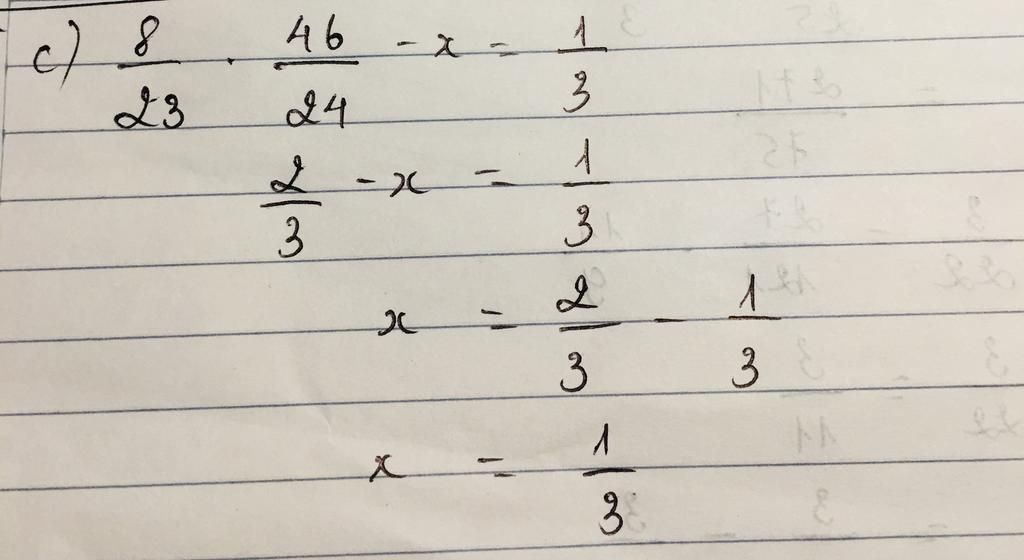 c) 8/23 . 46/24 - x = 1/3
2/3 - x = 1/3
x = 2/3 - 1/3
x = 1/3